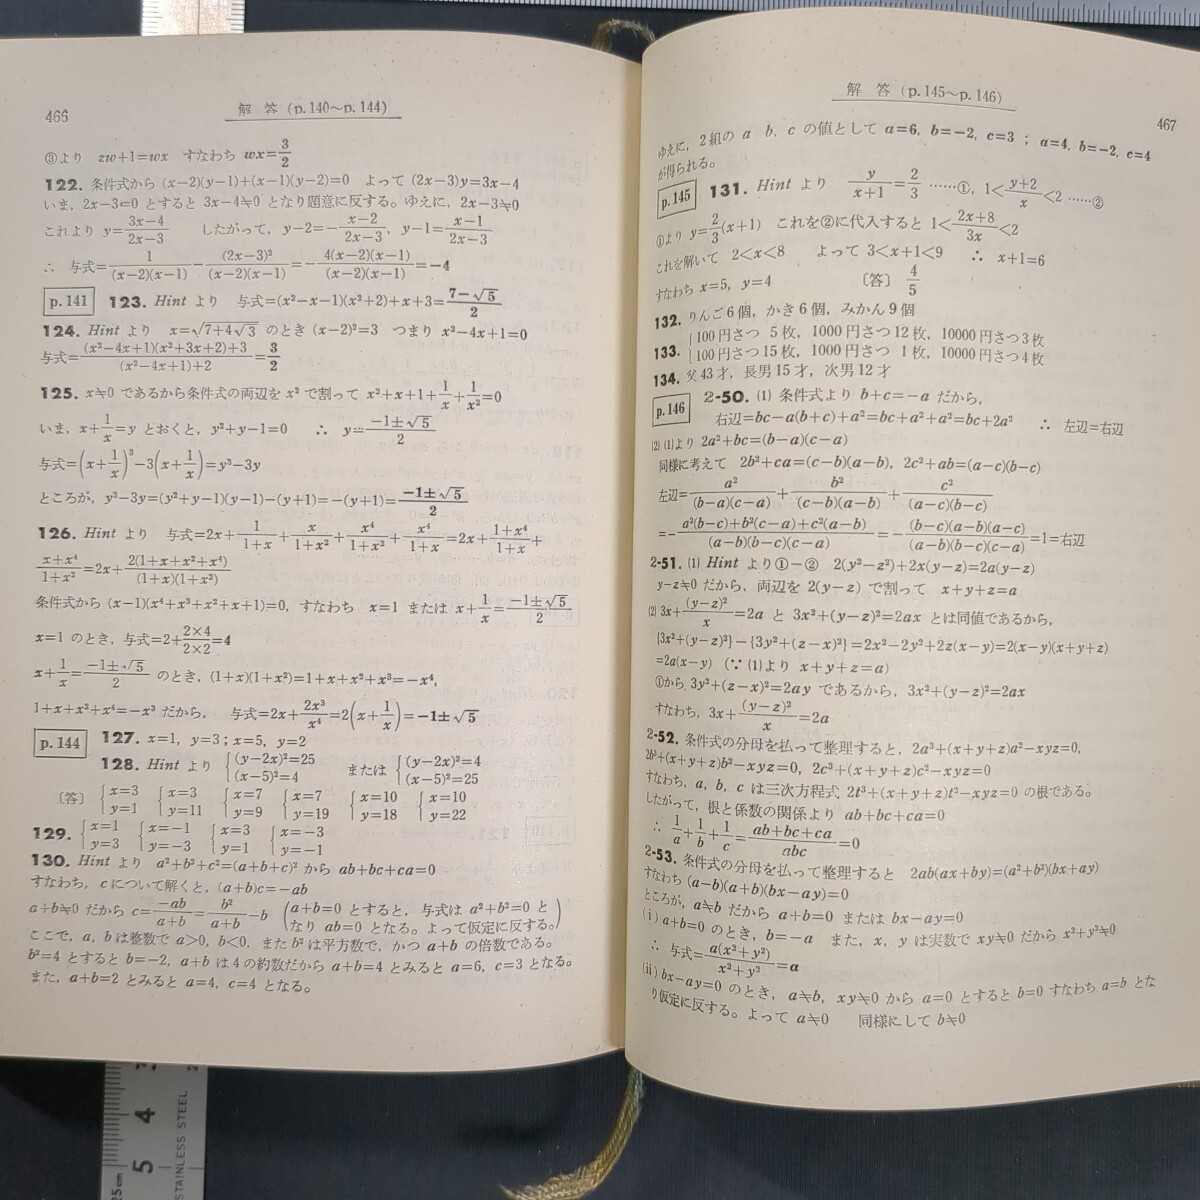 466
解 答 (p.140～p.144)
③より zw+1=wx すなわち wx=3/2
122. 条件式から (x−2)(y−1)+(x−1)(y−2)=0 よって (2x−3)y=3x−4
いま, 2x−3=0 とすると 3x−4≒0 となり題意に反する。ゆえに, 2x−3≒0
これより y=(3x−4)/(2x−3) したがって, y−2=−(x−2)/(2x−3), y−1=(x−1)/(2x−3)
∴ 与式=1/((x−2)(x−1))−(2x−3)²/((x−2)(x−1))=−4(x−2)(x−1)/((x−2)(x−1))=−4
p.141 123. Hint より 与式=(x²−x−1)(x²+2)+x+3=(7−√5)/2
124. Hint より x=√(7+4√3) のとき (x−2)²=3 つまり x²−4x+1=0
与式=((x²−4x+1)(x²+3x+2)+3)/((x²−4x+1)+2)=3/2
125. x≒0 であるから条件式の両辺を x² で割って x²+x+1+1/x+1/x²=0
いま, x+1/x=y とおくと, y²+y−1=0 ∴ y=(−1±√5)/2
与式=(x+1/x)³−3(x+1/x)=y³−3y
ところが, y³−3y=(y²+y−1)(y−1)−(y+1)=−(y+1)=(−1±√5)/2
126. Hint より 与式=2x+1/(1+x)+x/(1+x²)+x⁴/(1+x²)+x⁴/(1+x)=2x+(1+x⁴)/(1+x)+
(x+x⁴)/(1+x²)=2x+2(1+x+x²+x⁴)/((1+x)(1+x²))
条件式から (x−1)(x⁴+x³+x²+x+1)=0, すなわち x=1 または x+1/x=(−1±√5)/2
x=1 のとき, 与式=2+(2×4)/(2×2)=4
x+1/x=(−1±√5)/2 のとき, (1+x)(1+x²)=1+x+x²+x³=−x⁴,
1+x+x²+x⁴=−x³ だから, 与式=2x+2x³/x⁴=2(x+1/x)=−1±√5
p.144 127. x=1, y=3; x=5, y=2
128. Hint より {(y−2x)²=25 (x−5)²=4 または {(y−2x)²=4 (x−5)²=25
〔答〕 {x=3 y=1 {x=3 y=11 {x=7 y=9 {x=7 y=19 {x=10 y=18 {x=10 y=22
129. {x=1 y=3 {x=−1 y=−3 {x=3 y=1 {x=−3 y=−1
130. Hint より a²+b²+c²=(a+b+c)² から ab+bc+ca=0
すなわち, c について解くと, (a+b)c=−ab
a+b≒0 だから c=−ab/(a+b)=b²/(a+b)−b (a+b=0 とすると, 与式は a²+b²=0 と
なり ab=0 となる。よって仮定に反する。)
ここで, a, b は整数で a>0, b<0. また b² は平方数で, かつ a+b の倍数である。
b²=4 とすると b=−2, a+b は 4 の約数だから a+b=4 とみると a=6, c=3 となる。
また, a+b=2 とみると a=4, c=4 となる。
解 答 (p.145～p.146)
467
ゆえに, 2組の a b, c の値として a=6, b=−2, c=3 ; a=4, b=−2, c=4
が得られる。
p.145 131. Hint より y/(x+1)=2/3 ……①, 1<(y+2)/x<2 ……②
①より y=2/3(x+1) これを②に代入すると 1<(2x+8)/3x<2
これを解いて 2<x<8 よって 3<x+1<9 ∴ x+1=6
すなわち x=5, y=4 〔答〕 4/5
132. りんご6個, かき6個, みかん9個
133. {100円さつ 5枚, 1000円さつ12枚, 10000円さつ3枚
100円さつ15枚, 1000円さつ 1枚, 10000円さつ4枚
134. 父43才, 長男15才, 次男12才
p.146 2-50. (1) 条件式より b+c=−a だから,
右辺=bc−a(b+c)+a²=bc+a²+a²=bc+2a² ∴ 左辺=右辺
(2) (1)より 2a²+bc=(b−a)(c−a)
同様に考えて 2b²+ca=(c−b)(a−b), 2c²+ab=(a−c)(b−c)
左辺=a²/((b−a)(c−a))+b²/((c−b)(a−b))+c²/((a−c)(b−c))
=−(a²(b−c)+b²(c−a)+c²(a−b))/((a−b)(b−c)(c−a))=−((b−c)(a−b)(a−c))/((a−b)(b−c)(c−a))=1=右辺
2-51. (1) Hint より①−② 2(y²−z²)+2x(y−z)=2a(y−z)
y−z≒0 だから, 両辺を 2(y−z) で割って x+y+z=a
(2) 3x+(y−z)²/x=2a と 3x²+(y−z)²=2ax とは同値であるから,
{3x²+(y−z)²}−{3y²+(z−x)²}=2x²−2y²+2z(x−y)=2(x−y)(x+y+z)
=2a(x−y) (∵ (1)より x+y+z=a)
①から 3y²+(z−x)²=2ay であるから, 3x²+(y−z)²=2ax
すなわち, 3x+(y−z)²/x=2a
2-52. 条件式の分母を払って整理すると, 2a³+(x+y+z)a²−xyz=0,
2b³+(x+y+z)b²−xyz=0, 2c³+(x+y+z)c²−xyz=0
すなわち, a, b, c は三次方程式 2t³+(x+y+z)t²−xyz=0 の根である。
したがって, 根と係数の関係より ab+bc+ca=0
∴ 1/a+1/b+1/c=(ab+bc+ca)/abc=0
2-53. 条件式の分母を払って整理すると 2ab(ax+by)=(a²+b²)(bx+ay)
すなわち (a−b)(a+b)(bx−ay)=0
ところが, a≒b だから a+b=0 または bx−ay=0
(i) a+b=0 のとき, b=−a また, x, y は実数で xy≒0 だから x²+y²≒0
∴ 与式=a(x²+y²)/(x²+y²)=a
(ii) bx−ay=0 のとき, a≒b, xy≒0 から a=0 とすると b=0 すなわち a=b とな
り仮定に反する。よって a≒0 同様にして b≒0
4
5
25cm
STAINLESS STEEL